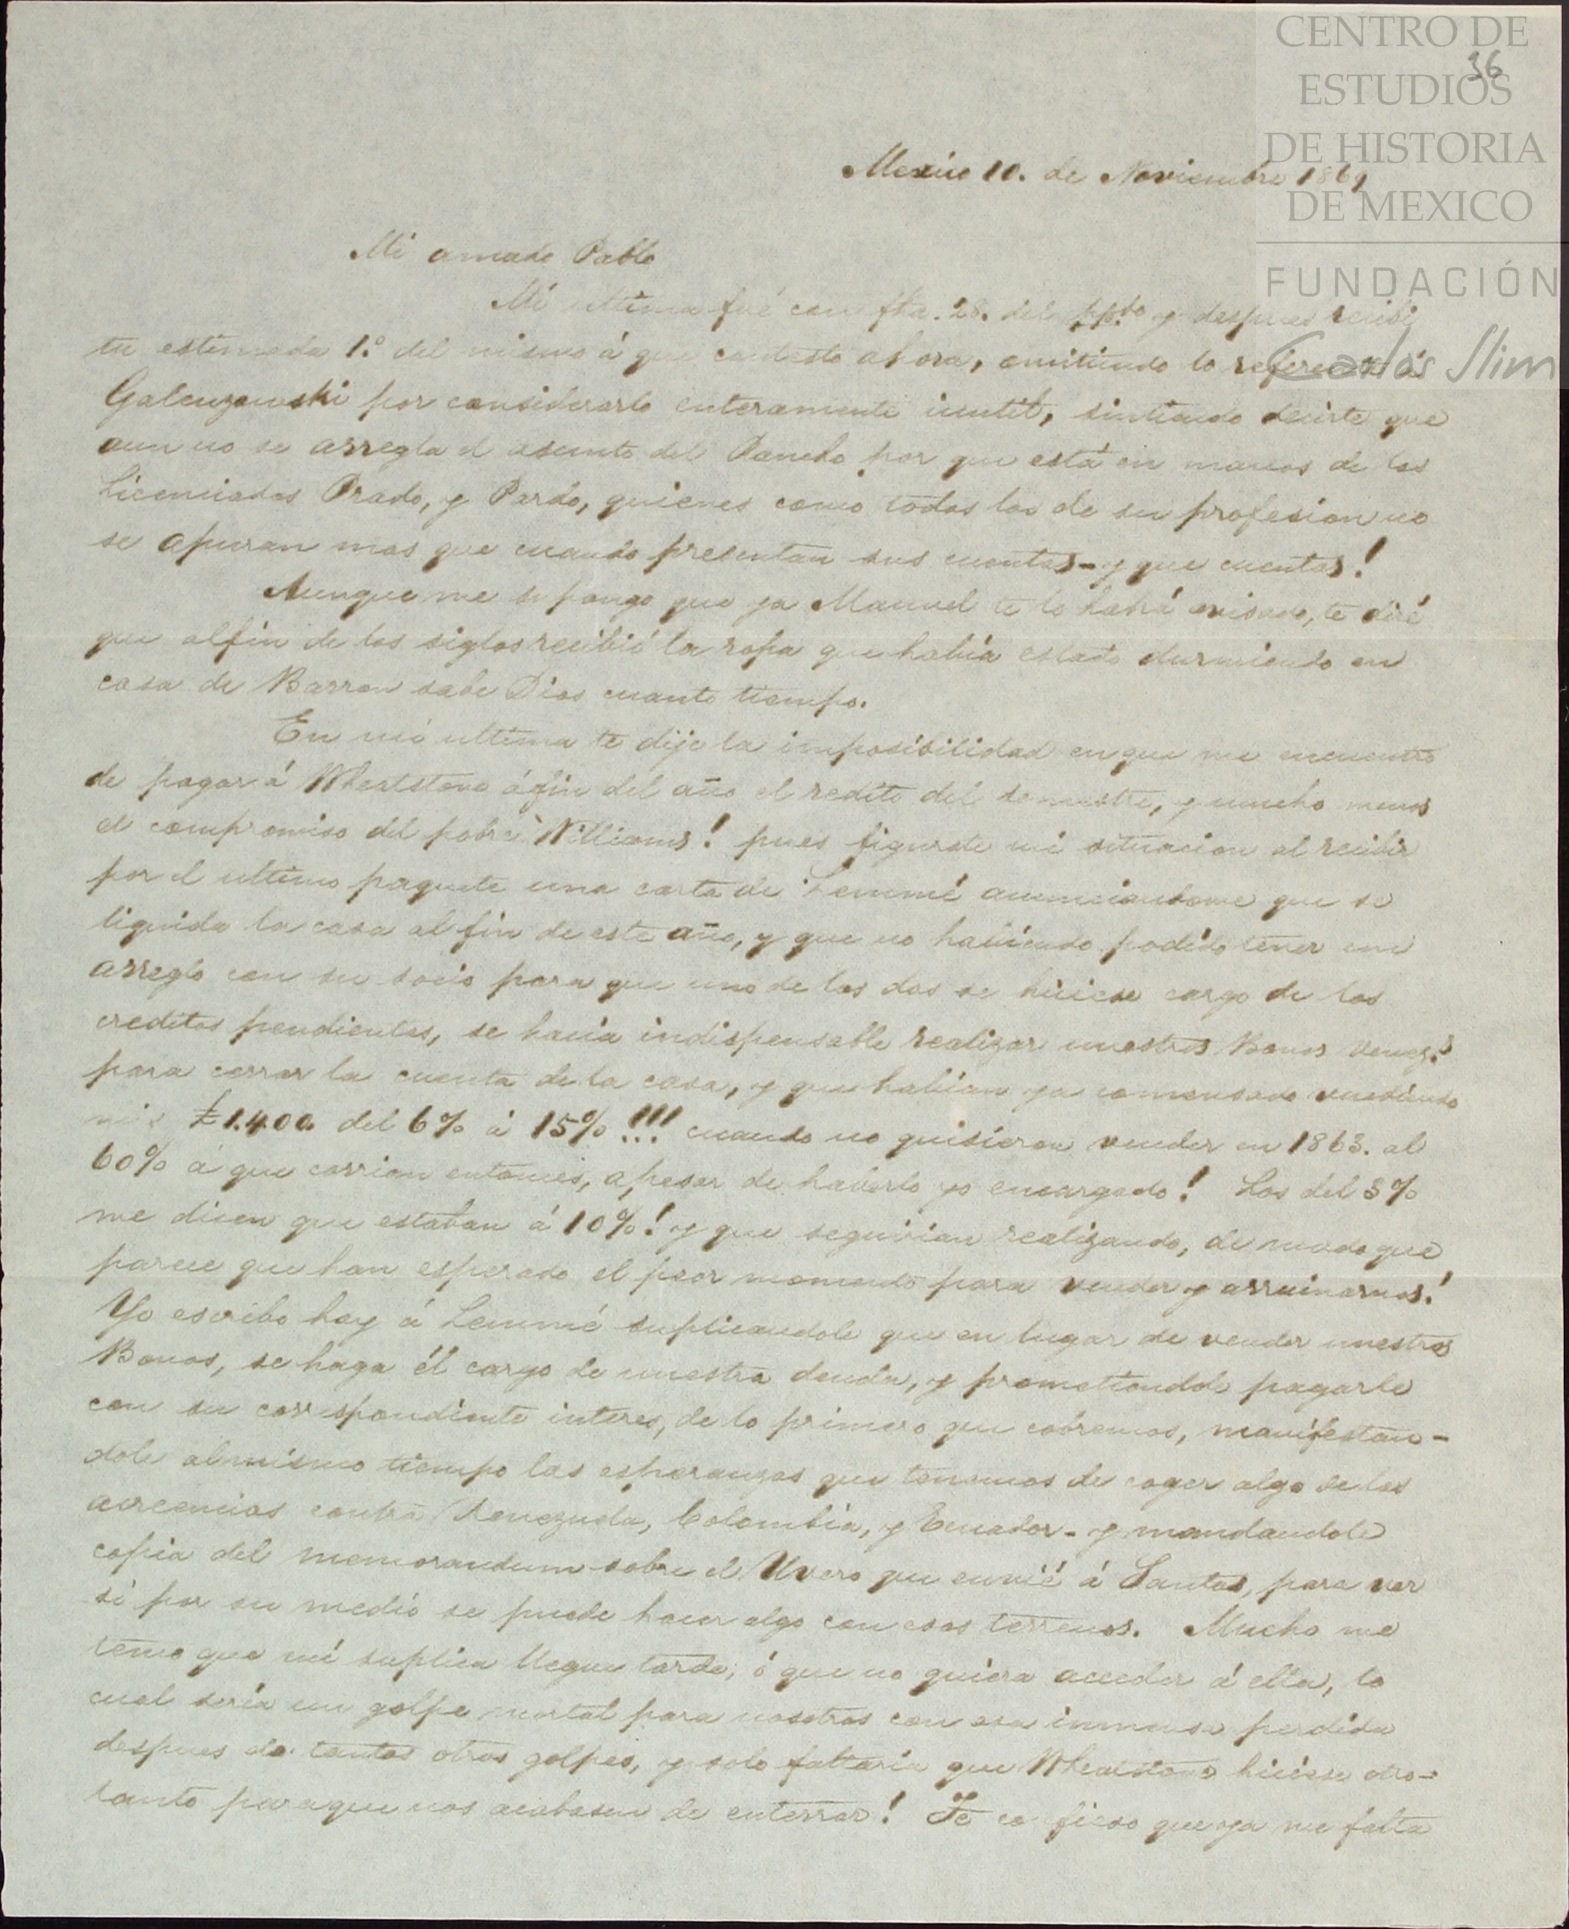 CENTRO DE
ESTUDIOS
DE HISTORIA
DE MEXICO
FUNDACIÓN
Carlos Slim
36
Mexico 10. de Noviembre 1869
Mi amado Pablo
Mi ultima fué con fha. 28. del ppdo y despues recibi
tu estimada 1º del mismo á que contesto ahora, omitiendo lo referente á
Galenzowski por considerarlo enteramente inutil, sintiendo decirte que
aun no se arregla el asunto del Rancho por que está en manos de los
Licenciados Prado, y Pardo, quienes como todos los de su profesion no
se apuran mas que cuando presentan sus cuentas - y que cuentas!
Aunque me supongo que ya Manuel te lo habrá avisado, te diré
que al fin de los siglos recibió la ropa que habia estado durmiendo en
casa de Barron sabe Dios cuanto tiempo.
En mi ultima te dije la imposibilidad en que me encuentro
de pagar á Wheatstone á fin del año el redito del semestre, y mucho menos
el compromiso del pobre Williams! pues figurate mi situacion al recibir
por el ultimo paquete una carta de Lemmé anunciandome que se
liquida la casa al fin de este año, y que no habiendo podido tener un
arreglo con su socio para que uno de los dos se hiciese cargo de los
creditos pendientes, se hacia indispensable realizar nuestros Bonos Venez.s
para cerrar la cuenta de la casa, y que habian ya comensado vendiendo
mis £1.400 del 6% á 15%!!! cuando no quisieron vender en 1863. al
60% á que corrian entonces, apesar de haberlo yo encargado! Los del 3%
me dicen que estaban á 10%! y que seguirian realizando, de modo que
parece que han esperado el peor momento para vender y arruinarnos!
Yo escribo hoy á Lemmé suplicandole que en lugar de vender nuestros
Bonos, se haga él cargo de nuestra deuda, y prometiendole pagarle
con su correspondiente interes, de lo primero que cobremos, manifestan-
dole al mismo tiempo las esperanzas que tenemos de coger algo de las
acreencias contra Venezuela, Colombia, y Ecuador - y mandandole
copia del memorandum sobre el Uvero que envié á Santos, para ver
si por su medio se puede hacer algo con esos terrenos. Mucho me
temo que mi suplica llegue tarde, ó que no quiera acceder á ella, lo
cual seria un golpe mortal para nosotros con esa inmensa perdida
despues de tantos otros golpes, y solo faltaria que Wheatstone hiciese otro-
tanto para que nos acabasen de enterrar! Te confieso que ya me falta